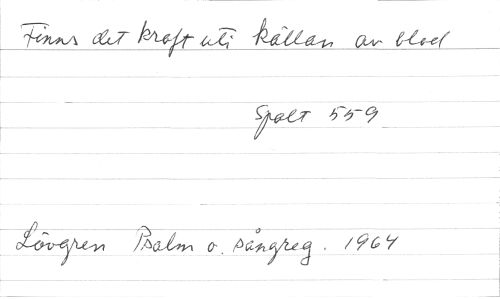 Finns det kraft uti källan av blod
Spalt 559
Lövgren Psalm o. sångreg. 1964